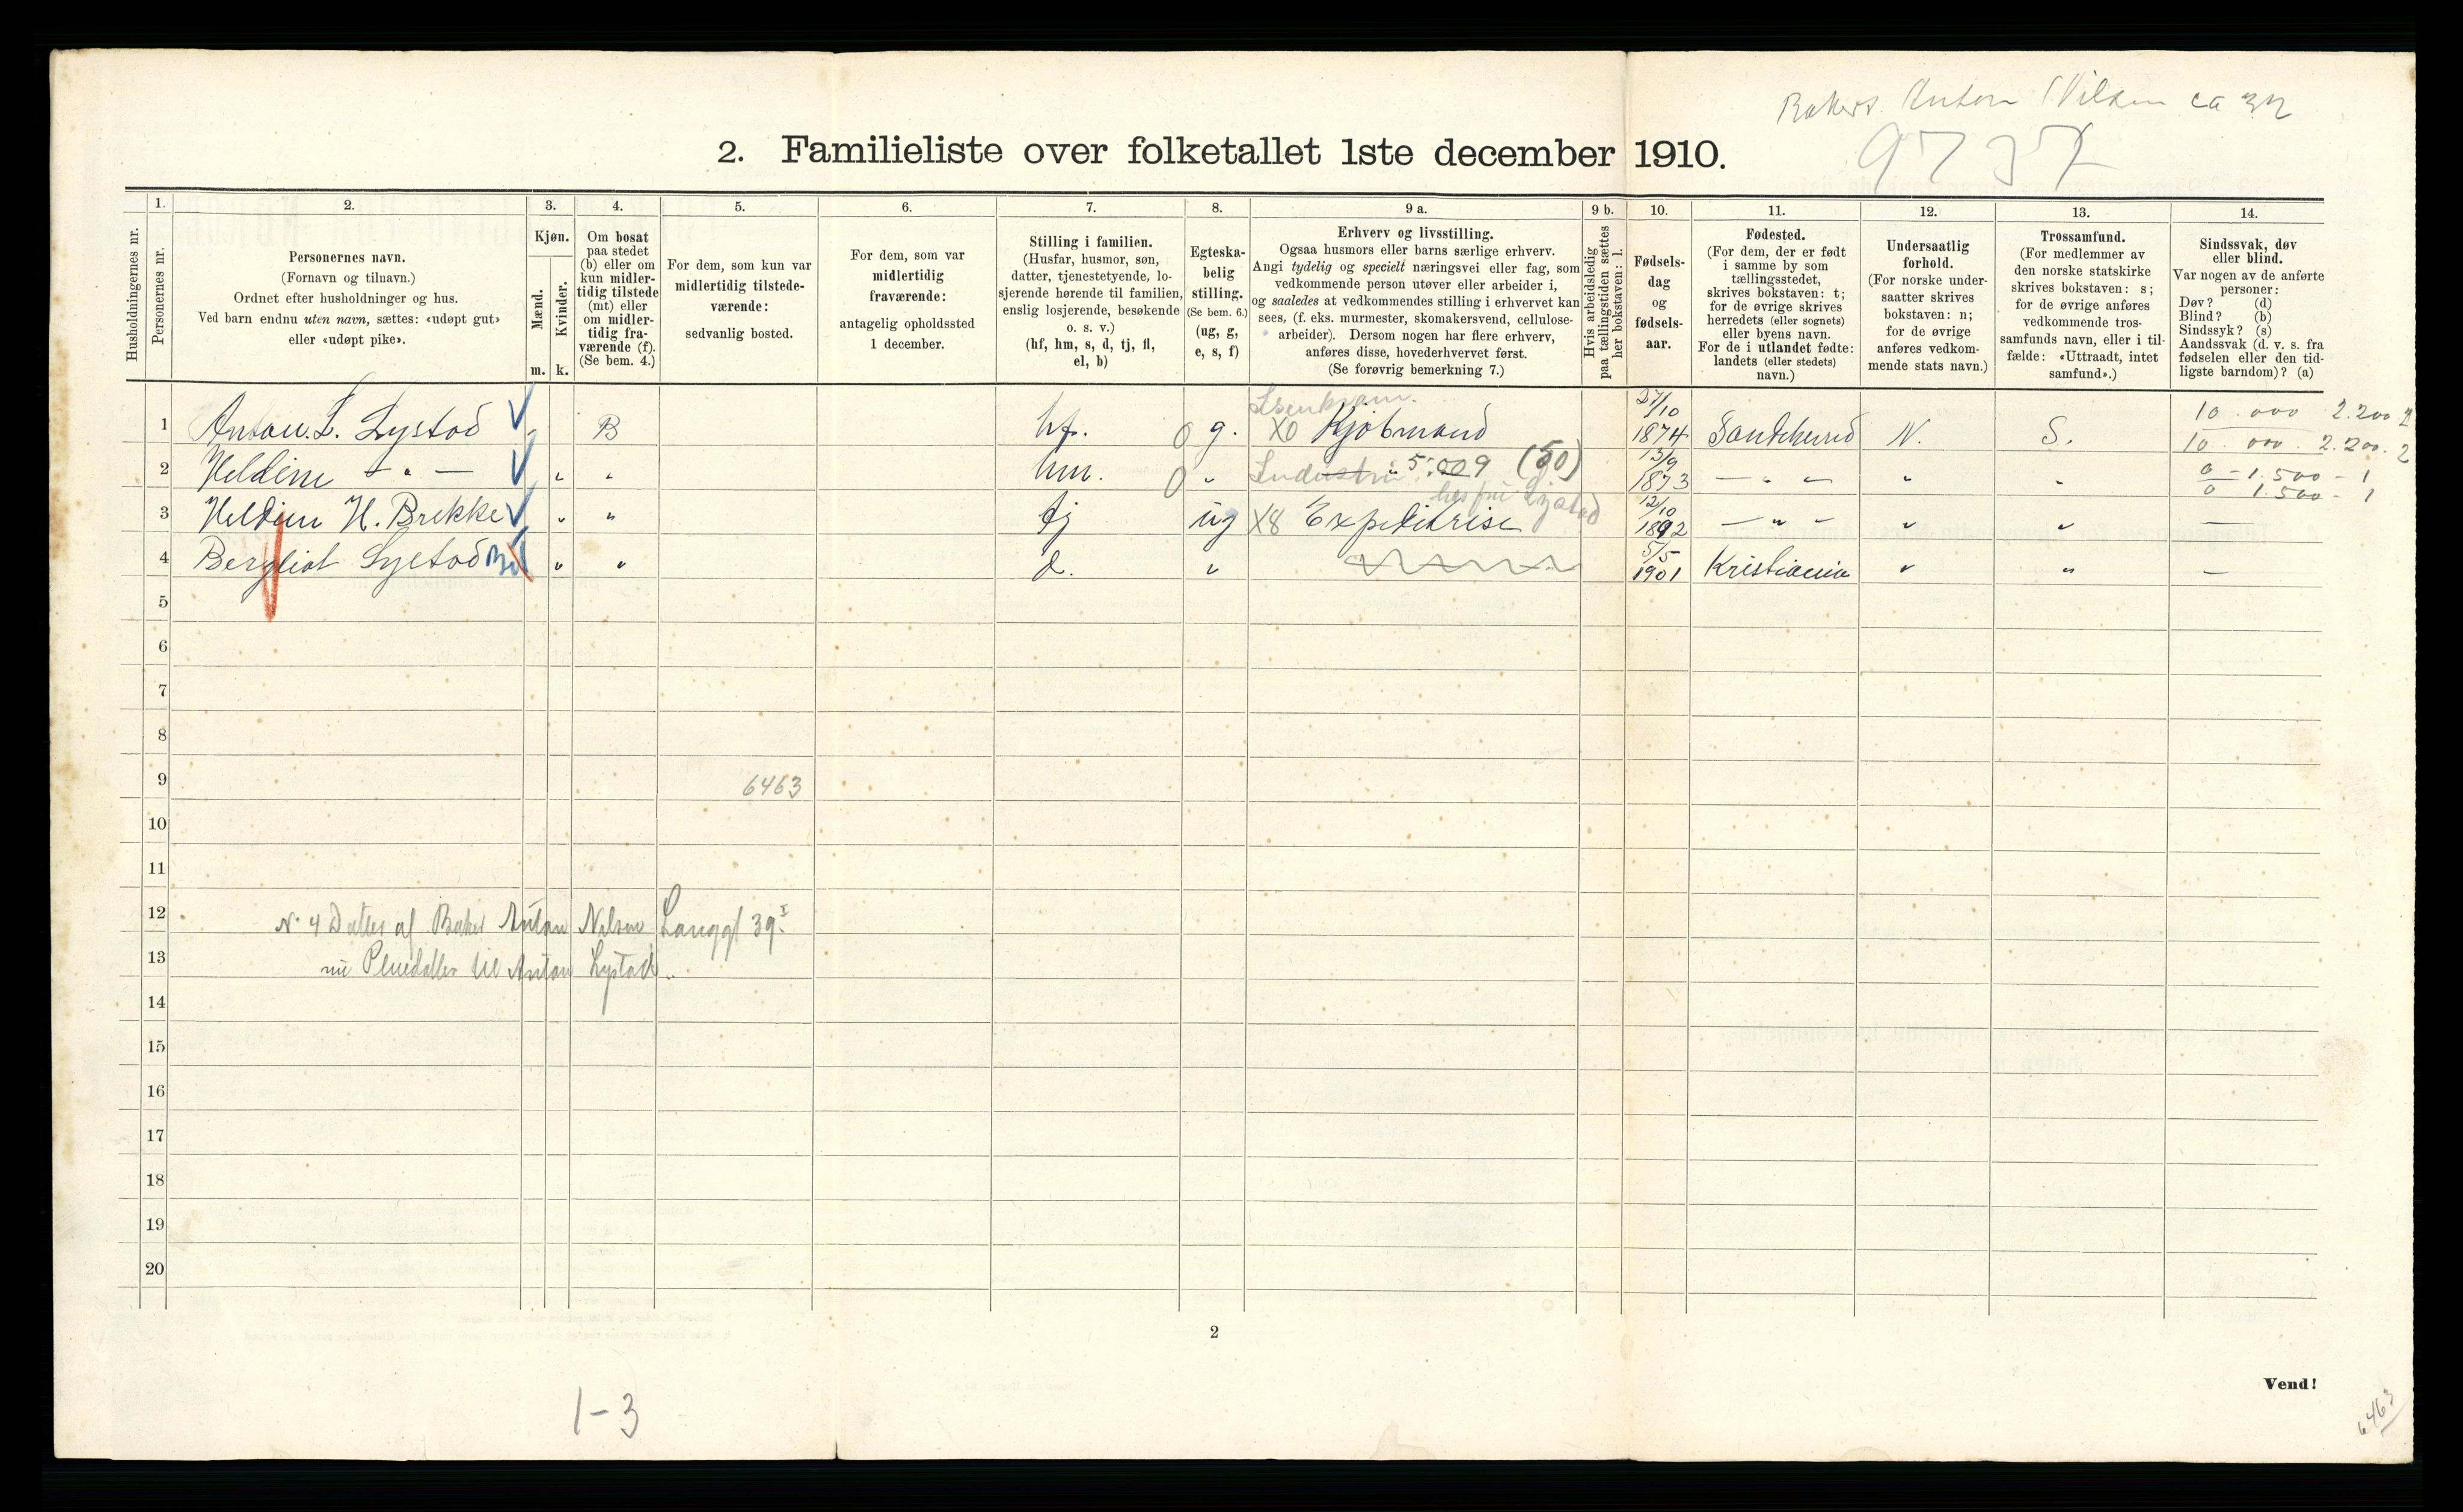 Bakers. Anton Nilsen ca 32
2. Familieliste over folketallet 1ste december 1910.
9737
Husholdningernes nr.
1.
Personernes nr.
2.
Personernes navn.
(Fornavn og tilnavn.)
Ordnet efter husholdninger og hus.
Ved barn endnu uten navn, sættes: «udøpt gut»
eller «udøpt pike».
3.
Kjøn.
Mænd.
Kvinder.
m.
k.
4.
Om bosat
paa stedet
(b) eller om
kun midler-
tidig tilstede
(mt) eller
om midler-
tidig fra-
værende (f).
(Se bem. 4.)
5.
For dem, som kun var
midlertidig tilstede-
værende:
sedvanlig bosted.
6.
For dem, som var
midlertidig
fraværende:
antagelig opholdssted
1 december.
7.
Stilling i familien.
(Husfar, husmor, søn,
datter, tjenestetyende, lo-
sjerende hørende til familien,
enslig losjerende, besøkende
o. s. v.)
(hf, hm, s, d, tj, fl,
el, b)
8.
Egteska-
belig
stilling.
(Se bem. 6.)
(ug, g,
e, s, f)
9 a.
Erhverv og livsstilling.
Ogsaa husmors eller barns særlige erhverv.
Angi tydelig og specielt næringsvei eller fag, som
vedkommende person utøver eller arbeider i,
og saaledes at vedkommendes stilling i erhvervet kan
sees, (f. eks. murmester, skomakersvend, cellulose-
arbeider). Dersom nogen har flere erhverv,
anføres disse, hovederhvervet først.
(Se forøvrig bemerkning 7.)
9 b.
Hvis arbeidsledig
paa tællingstiden sættes
her bokstaven: l.
10.
Fødsels-
dag
og
fødsels-
aar.
11.
Fødested.
(For dem, der er født
i samme by som
tællingsstedet,
skrives bokstaven: t;
for de øvrige skrives
herredets (eller sognets)
eller byens navn.
For de i utlandet fødte:
landets (eller stedets)
navn.)
12.
Undersaatlig
forhold.
(For norske under-
saatter skrives
bokstaven: n;
for de øvrige
anføres vedkom-
mende stats navn.)
13.
Trossamfund.
(For medlemmer av
den norske statskirke
skrives bokstaven: s;
for de øvrige anføres
vedkommende tros-
samfunds navn, eller i til-
fælde: «Uttraadt, intet
samfund».)
14.
Sindssvak, døv
eller blind.
Var nogen av de anførte
personer:
Døv? (d)
Blind? (b)
Sindssyk? (s)
Aandssvak (d. v. s. fra
fødselen eller den tid-
ligste barndom)? (a)
Isenkram. 27/10 10.000 2.200 2
1 Anton. L. Lystad B hf. 0 g. X0 Kjøbmand 1874 Sandeherred N. S. 10.000. 2.200. 2
2 Heldine — " — " " hm. 0 " Industri. 5.009 (50) 13/9 1873 — " — " " 0 - 1.500 - 1
0 1.500 - 1
3 Heldine H. Brekke " " tj ug X8 Expeditrise 12/10 1892 — " — " " —
4 Bergliot Lystad " " d. " 5/5 1901 Kristiania " " —
5
6
7
8
9 6463
10
11
12 N. 4 Datter af Baker Anton Nilsen Langgt 39 I
13 nu Pleiedatter til Anton Lystad.
14
15
16
17
18
19
20
2
Vend!
1-3
6463